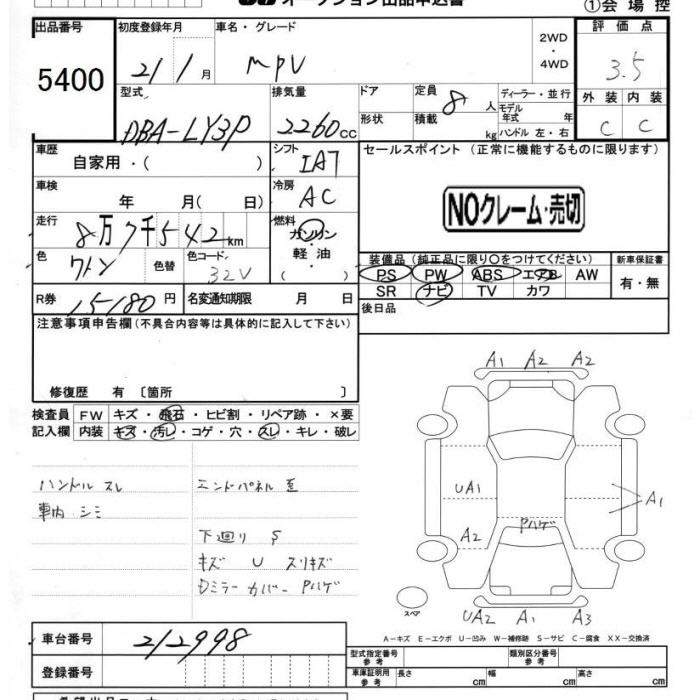 オークション出品申込書
①会場控
出品番号 5400
初度登録年月 21/1月
車名・グレード MPV
2WD・4WD
評価点 3.5
外装 C 内装 C
型式 DBA-LY3P
排気量 2260cc
ドア 形状
定員 8人
積載 kg
ディーラー・並行
モデル年式 年
ハンドル 左・右
車歴 自家用・( )
シフト IA7
車検 年 月( 日)
冷房 AC
走行 8万7千542km
燃料 ガソリン 軽油 ( )
色 ワイン 色替
色コード 32V
R券 15180円
名変通知期限 月 日
セールスポイント (正常に機能するものに限ります)
NOクレーム・売切
装備品 (純正品に限り○をつけてください)
PS PW ABS エアB AW
SR ナビ TV カワ
新車保証書 有・無
後日品
注意事項申告欄(不具合内容等は具体的に記入して下さい)
修復歴 有 〔箇所 〕
検査員記入欄
FW キズ・飛石・ヒビ割・リペア跡・×要
内装 キズ・汚レ・コゲ・穴・スレ・キレ・破レ
ハンドル スレ
車内 シミ
エンドパネル 歪
下廻り S
キズ U スリキズ
Dミラーカバー Pハゲ
A1 A2 A2
UA1
A2
Pハゲ
A1
スペア
UA2 A1 A3
A-キズ E-エクボ U-凹み W-補修跡 S-サビ C-腐食 XX-交換済
車台番号 212998
登録番号
型式指定番号 参考
類別区分番号 参考
車庫証明用 参考 長さ cm 幅 cm 高さ cm